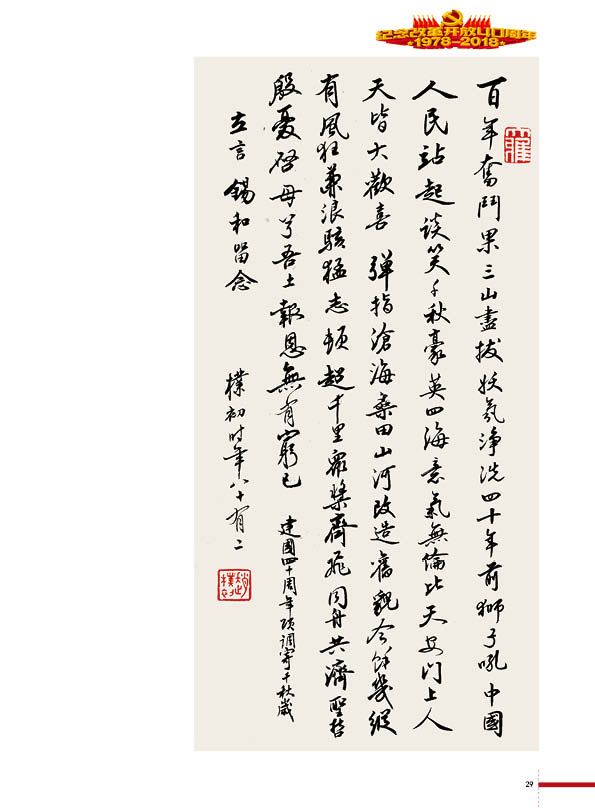 纪念改革开放40周年
★1978-2018★
百年奮鬥果三山盡拔妖氛淨洗四十年前獅子吼中國
人民站起談笑千秋豪英四海意氣無倫比天安门上人
天皆大歡喜 彈指滄海桑田山河改造舊觀今餘幾縱
有風狂兼浪駭猛志頓超千里眾槳齊飛同舟共濟聖哲
殷憂啓毋兮吾土報恩無有窮已 建國四十周年頌調寄千秋歲
立言 錫和留念 樸初时年八十有二
趙樸初
29